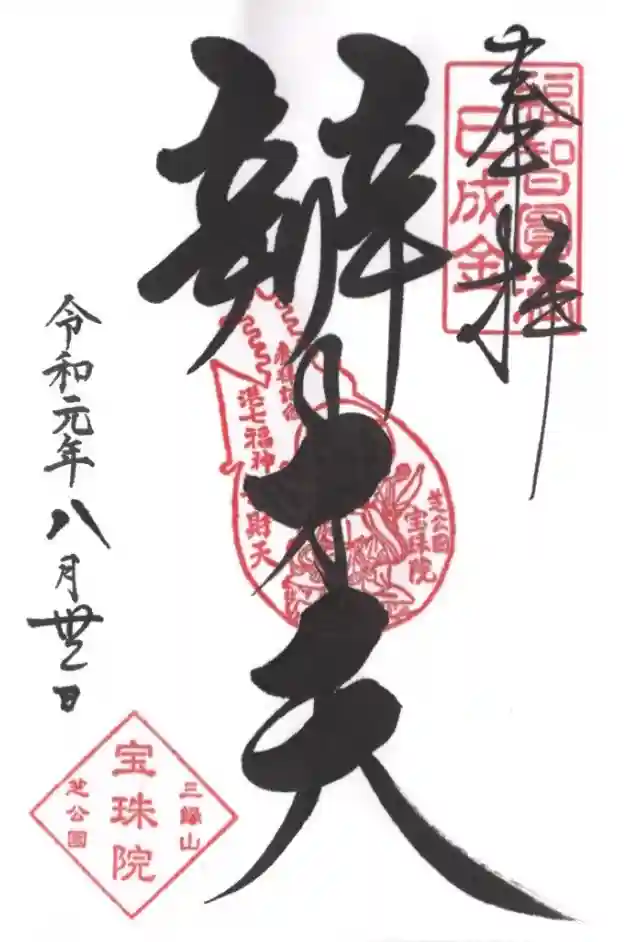 奉拝
福智圓満
已成金
辨才天
奉拝記念
港七福神
弁財天
芝公園
宝珠院
令和元年八月
日
三縁山
宝珠院
芝公園